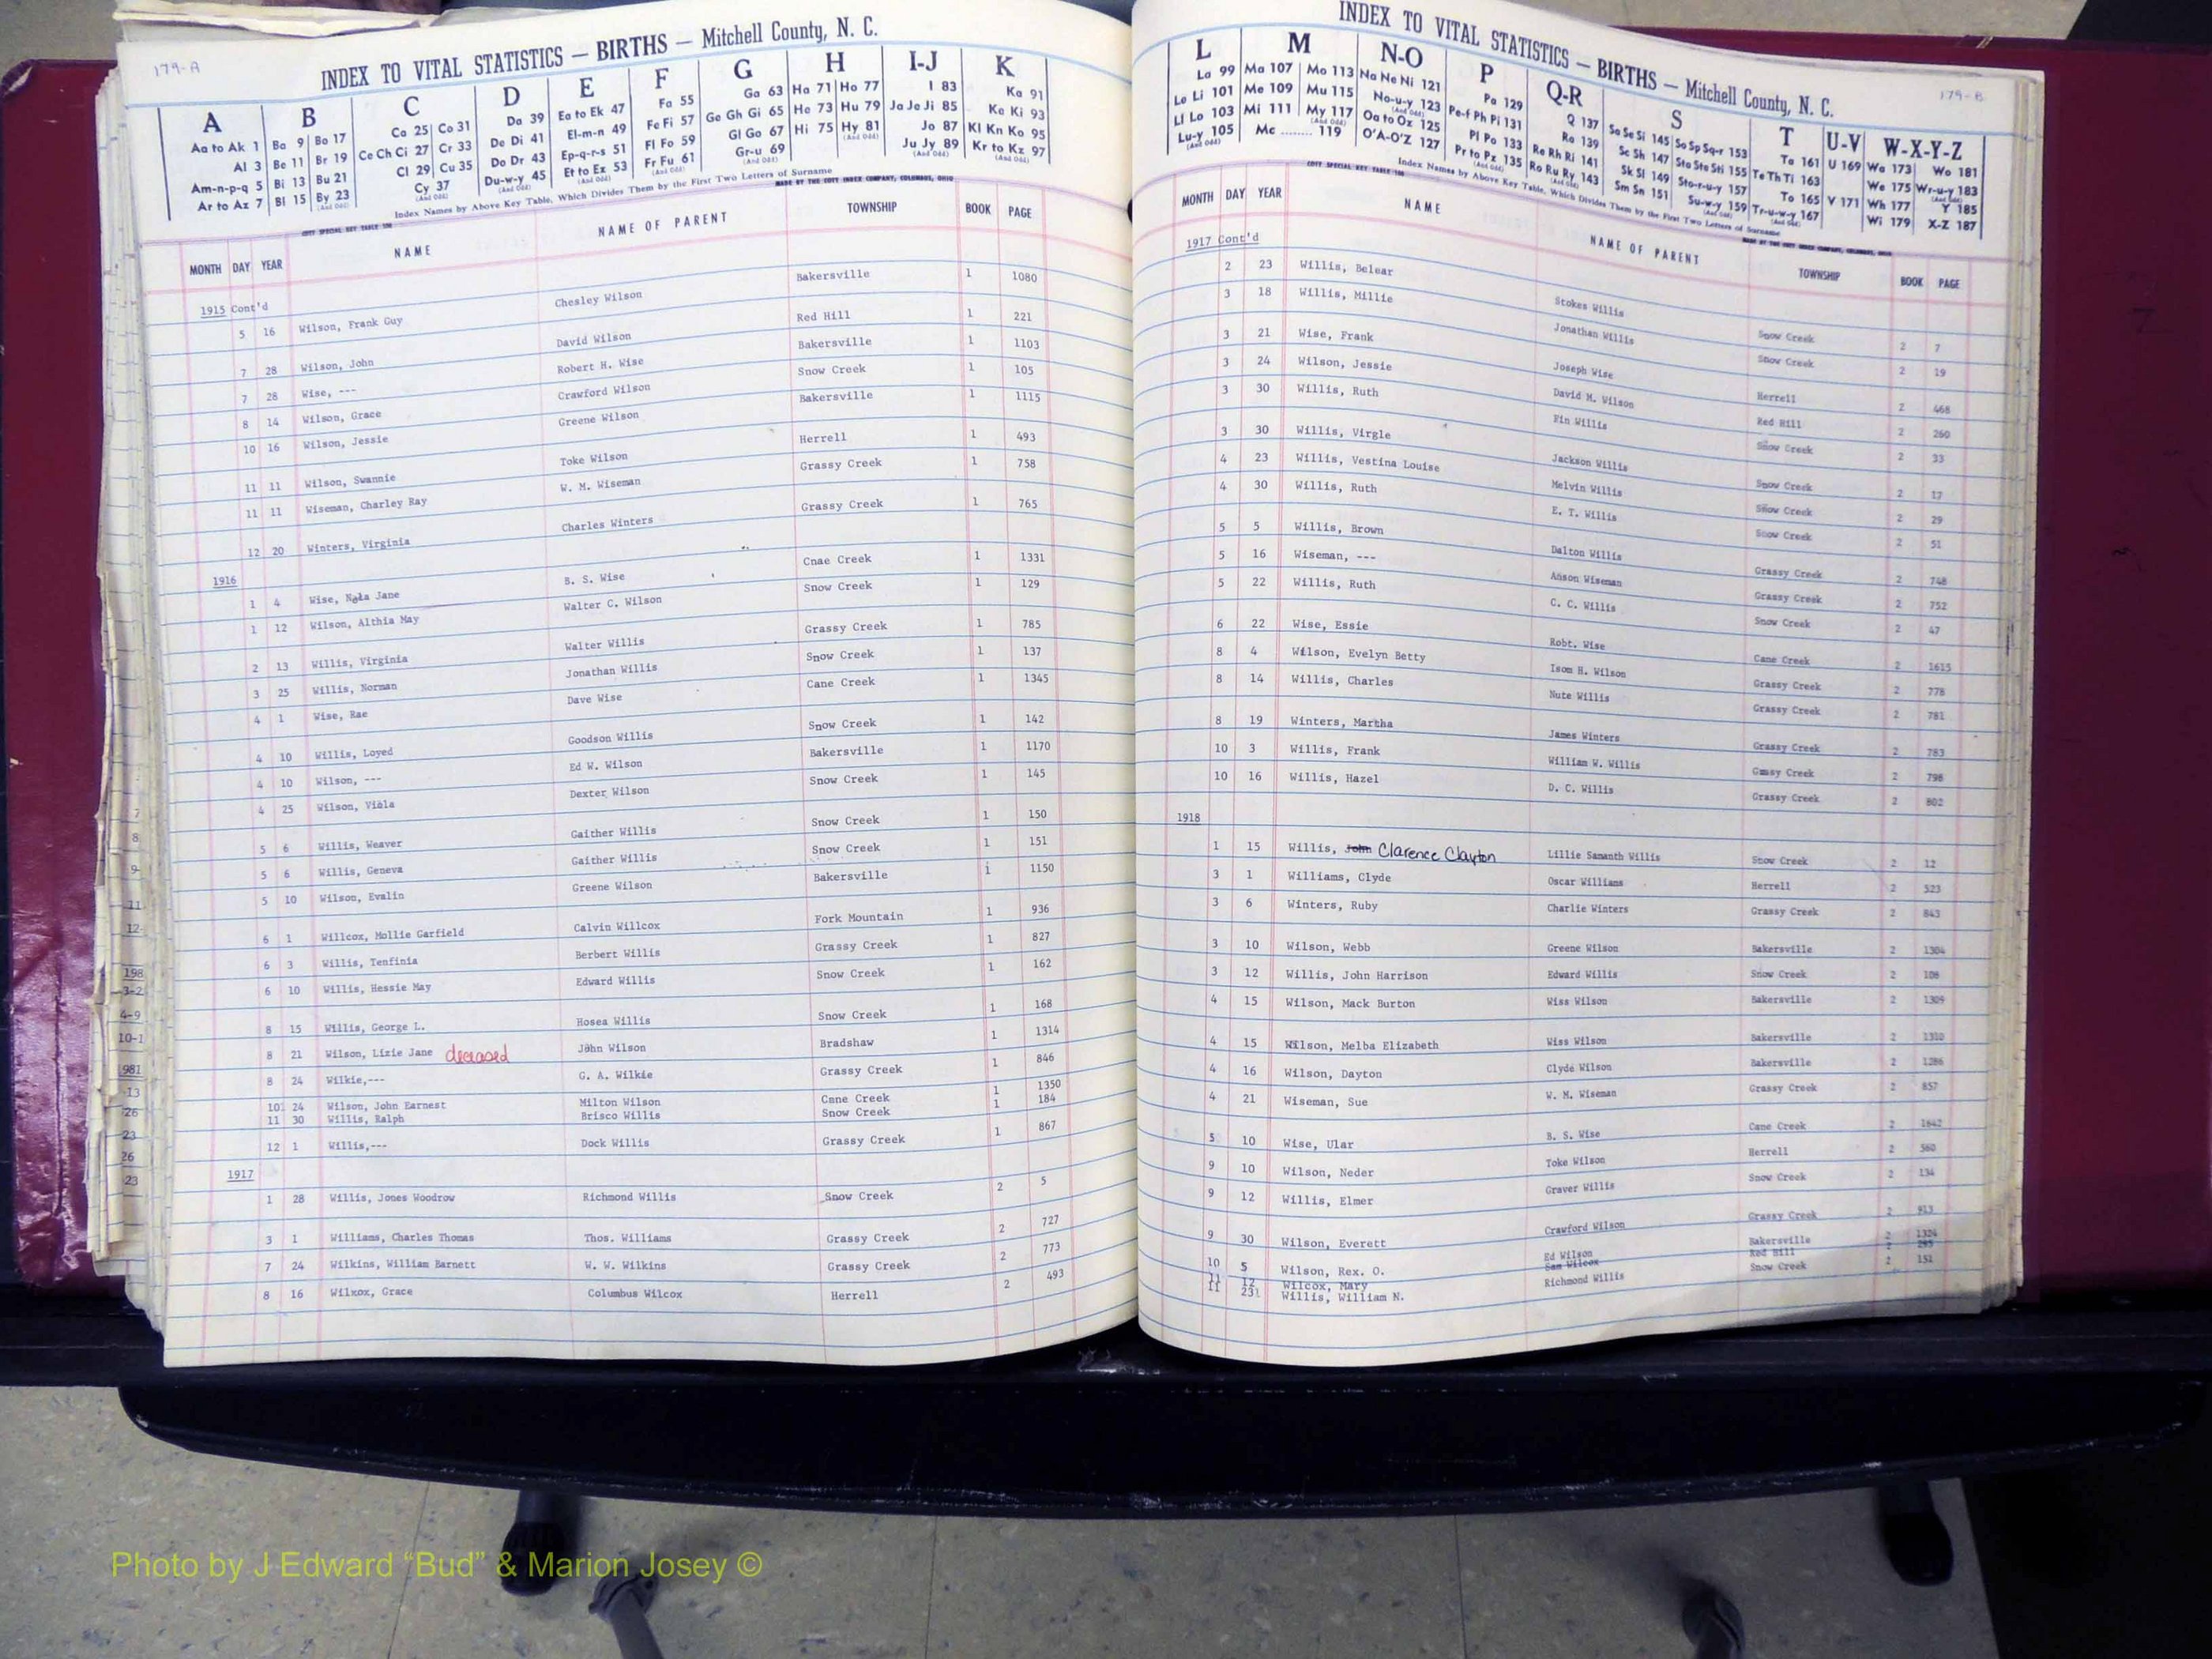 179-A
INDEX TO VITAL STATISTICS — BIRTHS — Mitchell County, N. C.
A B C D E F G H I-J K
Aa to Ak 1 Ba 9 Bo 17 Ca 25 Co 31 Da 39 Ea to Ek 47 Fa 55 Ga 63 Ha 71 Ho 77 I 83 Ka 91
Al 3 Be 11 Br 19 Ce Ch Ci 27 Cr 33 De Di 41 El-m-n 49 Fe Fi 57 Ge Gh Gi 65 He 73 Hu 79 Ja Je Ji 85 Ke Ki 93
Am-n-p-q 5 Bi 13 Bu 21 Cl 29 Cu 35 Do Dr 43 Ep-q-r-s 51 Fl Fo 59 Gl Go 67 Hi 75 Hy 81 (And Odd) Jo 87 Kl Kn Ko 95
Ar to Az 7 Bl 15 By 23 (And Odd) Cy 37 (And Odd) Du-w-y 45 (And Odd) Et to Ez 53 (And Odd) Fr Fu 61 (And Odd) Gr-u 69 (And Odd) Ju Jy 89 (And Odd) Kr to Kz 97 (And Odd)
Index Names by Above Key Table, Which Divides Them by the First Two Letters of Surname
COTT SPECIAL KEY TABLE 100 MADE BY THE COTT INDEX COMPANY, COLUMBUS, OHIO
MONTH DAY YEAR NAME NAME OF PARENT TOWNSHIP BOOK PAGE
1915 Cont'd
5 16 Wilson, Frank Guy Chesley Wilson Bakersville 1 1080
7 28 Wilson, John David Wilson Red Hill 1 221
7 28 Wise, --- Robert H. Wise Bakersville 1 1103
8 14 Wilson, Grace Crawford Wilson Snow Creek 1 105
10 16 Wilson, Jessie Greene Wilson Bakersville 1 1115
11 11 Wilson, Swannie Toke Wilson Herrell 1 493
11 11 Wiseman, Charley Ray W. M. Wiseman Grassy Creek 1 758
12 20 Winters, Virginia Charles Winters Grassy Creek 1 765
1916
1 4 Wise, Jane B. S. Wise Cnae Creek 1 1331
1 12 Wilson, Althia May Walter C. Wilson Snow Creek 1 129
2 13 Willis, Virginia Walter Willis Grassy Creek 1 785
3 25 Willis, Norman Jonathan Willis Snow Creek 1 137
4 1 Wise, Rae Dave Wise Cane Creek 1 1345
4 10 Willis, Loyed Goodson Willis Snow Creek 1 142
4 10 Wilson, --- Ed W. Wilson Bakersville 1 1170
4 25 Wilson, Viola Dexter Wilson Snow Creek 1 145
5 6 Willis, Weaver Gaither Willis Snow Creek 1 150
5 6 Willis, Geneva Gaither Willis Snow Creek 1 151
5 10 Wilson, Evalin Greene Wilson Bakersville 1 1150
6 1 Willcox, Mollie Garfield Calvin Willcox Fork Mountain 1 936
6 3 Willis, Tenfinia Berbert Willis Grassy Creek 1 827
6 10 Willis, Hessie May Edward Willis Snow Creek 1 162
8 15 Willis, George L. Hosea Willis Snow Creek 1 168
8 21 Wilson, Lizie Jane deceased John Wilson Bradshaw 1 1314
8 24 Wilkie,--- G. A. Wilkie Grassy Creek 1 846
10 24 Wilson, John Earnest Milton Wilson Cnne Creek 1 1350
11 30 Willis, Ralph Brisco Willis Snow Creek 1 184
12 1 Willis,--- Dock Willis Grassy Creek 1 867
1917
1 28 Willis, Jones Woodrow Richmond Willis Snow Creek 2 5
3 1 Williams, Charles Thomas Thos. Williams Grassy Creek 2 727
7 24 Wilkins, William Barnett W. W. Wilkins Grassy Creek 2 773
8 16 Wilxox, Grace Columbus Wilcox Herrell 2 493
179-B
INDEX TO VITAL STATISTICS — BIRTHS — Mitchell County, N. C.
L M N-O P Q-R S T U-V W-X-Y-Z
La 99 Ma 107 Mo 113 Na Ne Ni 121 Pa 129 Q 137 Sa Se Si 145 So Sp Sq-r 153 Ta 161 U 169 Wa 173 Wo 181
Le Li 101 Me 109 Mu 115 No-u-y 123 (And Odd) Pe-f Ph Pi 131 Ra 139 Sc Sh 147 Sta Ste Sti 155 Te Th Ti 163 We 175 Wr-u-y 183 (And Odd)
Ll Lo 103 Mi 111 My 117 (And Odd) Oa to Oz 125 Pl Po 133 Re Rh Ri 141 Sk Sl 149 Sto-r-u-y 157 To 165 V 171 Wh 177 Y 185
Lu-y 105 (And Odd) Mc ........ 119 O'A-O'Z 127 Pr to Pz 135 (And Odd) Ro Ru Ry 143 (And Odd) Sm Sn 151 Su-w-y 159 (And Odd) Tr-u-w-y 167 (And Odd) Wi 179 X-Z 187
Index Names by Above Key Table, Which Divides Them by the First Two Letters of Surname
COTT SPECIAL KEY TABLE 100 MADE BY THE COTT INDEX COMPANY, COLUMBUS, OHIO
MONTH DAY YEAR NAME NAME OF PARENT TOWNSHIP BOOK PAGE
1917 Cont'd
2 23 Willis, Belear Stokes Willis Snow Creek 2 7
3 18 Willis, Millie Jonathan Willis Snow Creek 2 19
3 21 Wise, Frank Joseph Wise Herrell 2 468
3 24 Wilson, Jessie David M. Wilson Red Hill 2 260
3 30 Willis, Ruth Fin Willis Snow Creek 2 33
3 30 Willis, Virgle Jackson Willis Snow Creek 2 17
4 23 Willis, Vestina Louise Melvin Willis Snow Creek 2 29
4 30 Willis, Ruth E. T. Willis Snow Creek 2 51
5 5 Willis, Brown Dalton Willis Grassy Creek 2 748
5 16 Wiseman, --- Anson Wiseman Grassy Creek 2 752
5 22 Willis, Ruth C. C. Willis Snow Creek 2 47
6 22 Wise, Essie Robt. Wise Cane Creek 2 1615
8 4 Wilson, Evelyn Betty Isom H. Wilson Grassy Creek 2 778
8 14 Willis, Charles Nute Willis Grassy Creek 2 781
8 19 Winters, Martha James Winters Grassy Creek 2 783
10 3 Willis, Frank William W. Willis Creek 2 798
10 16 Willis, Hazel D. C. Willis Grassy Creek 2 802
1918
1 15 Willis, John Clarence Clayton Lillie Samanth Willis Snow Creek 2 12
3 1 Williams, Clyde Oscar Williams Herrell 2 523
3 6 Winters, Ruby Charlie Winters Grassy Creek 2 843
3 10 Wilson, Webb Greene Wilson Bakersville 2 1304
3 12 Willis, John Harrison Edward Willis Snow Creek 2 108
4 15 Wilson, Mack Burton Wiss Wilson Bakersville 2 1309
4 15 Wilson, Melba Elizabeth Wiss Wilson Bakersville 2 1310
4 16 Wilson, Dayton Clyde Wilson Bakersville 2 1286
4 21 Wiseman, Sue W. M. Wiseman Grassy Creek 2 857
5 10 Wise, Ular B. S. Wise Cane Creek 2 1642
9 10 Wilson, Neder Toke Wilson Herrell 2 560
9 12 Willis, Elmer Graver Willis Snow Creek 2 134
9 30 Wilson, Everett Crawford Wilson Grassy Creek 2 913
10 5 Wilson, Rex. O. Ed Wilson Bakersville 2 1324
11 12 Wilcox, Mary Sam Wilcox Red Hill 2
11 Willis, William N. Richmond Willis Snow Creek 2 151
7
8
9
11
12
198
3-2
4-9
10-1
981
-13
26
23
26
23
Photo by J Edward “Bud” & Marion Josey ©